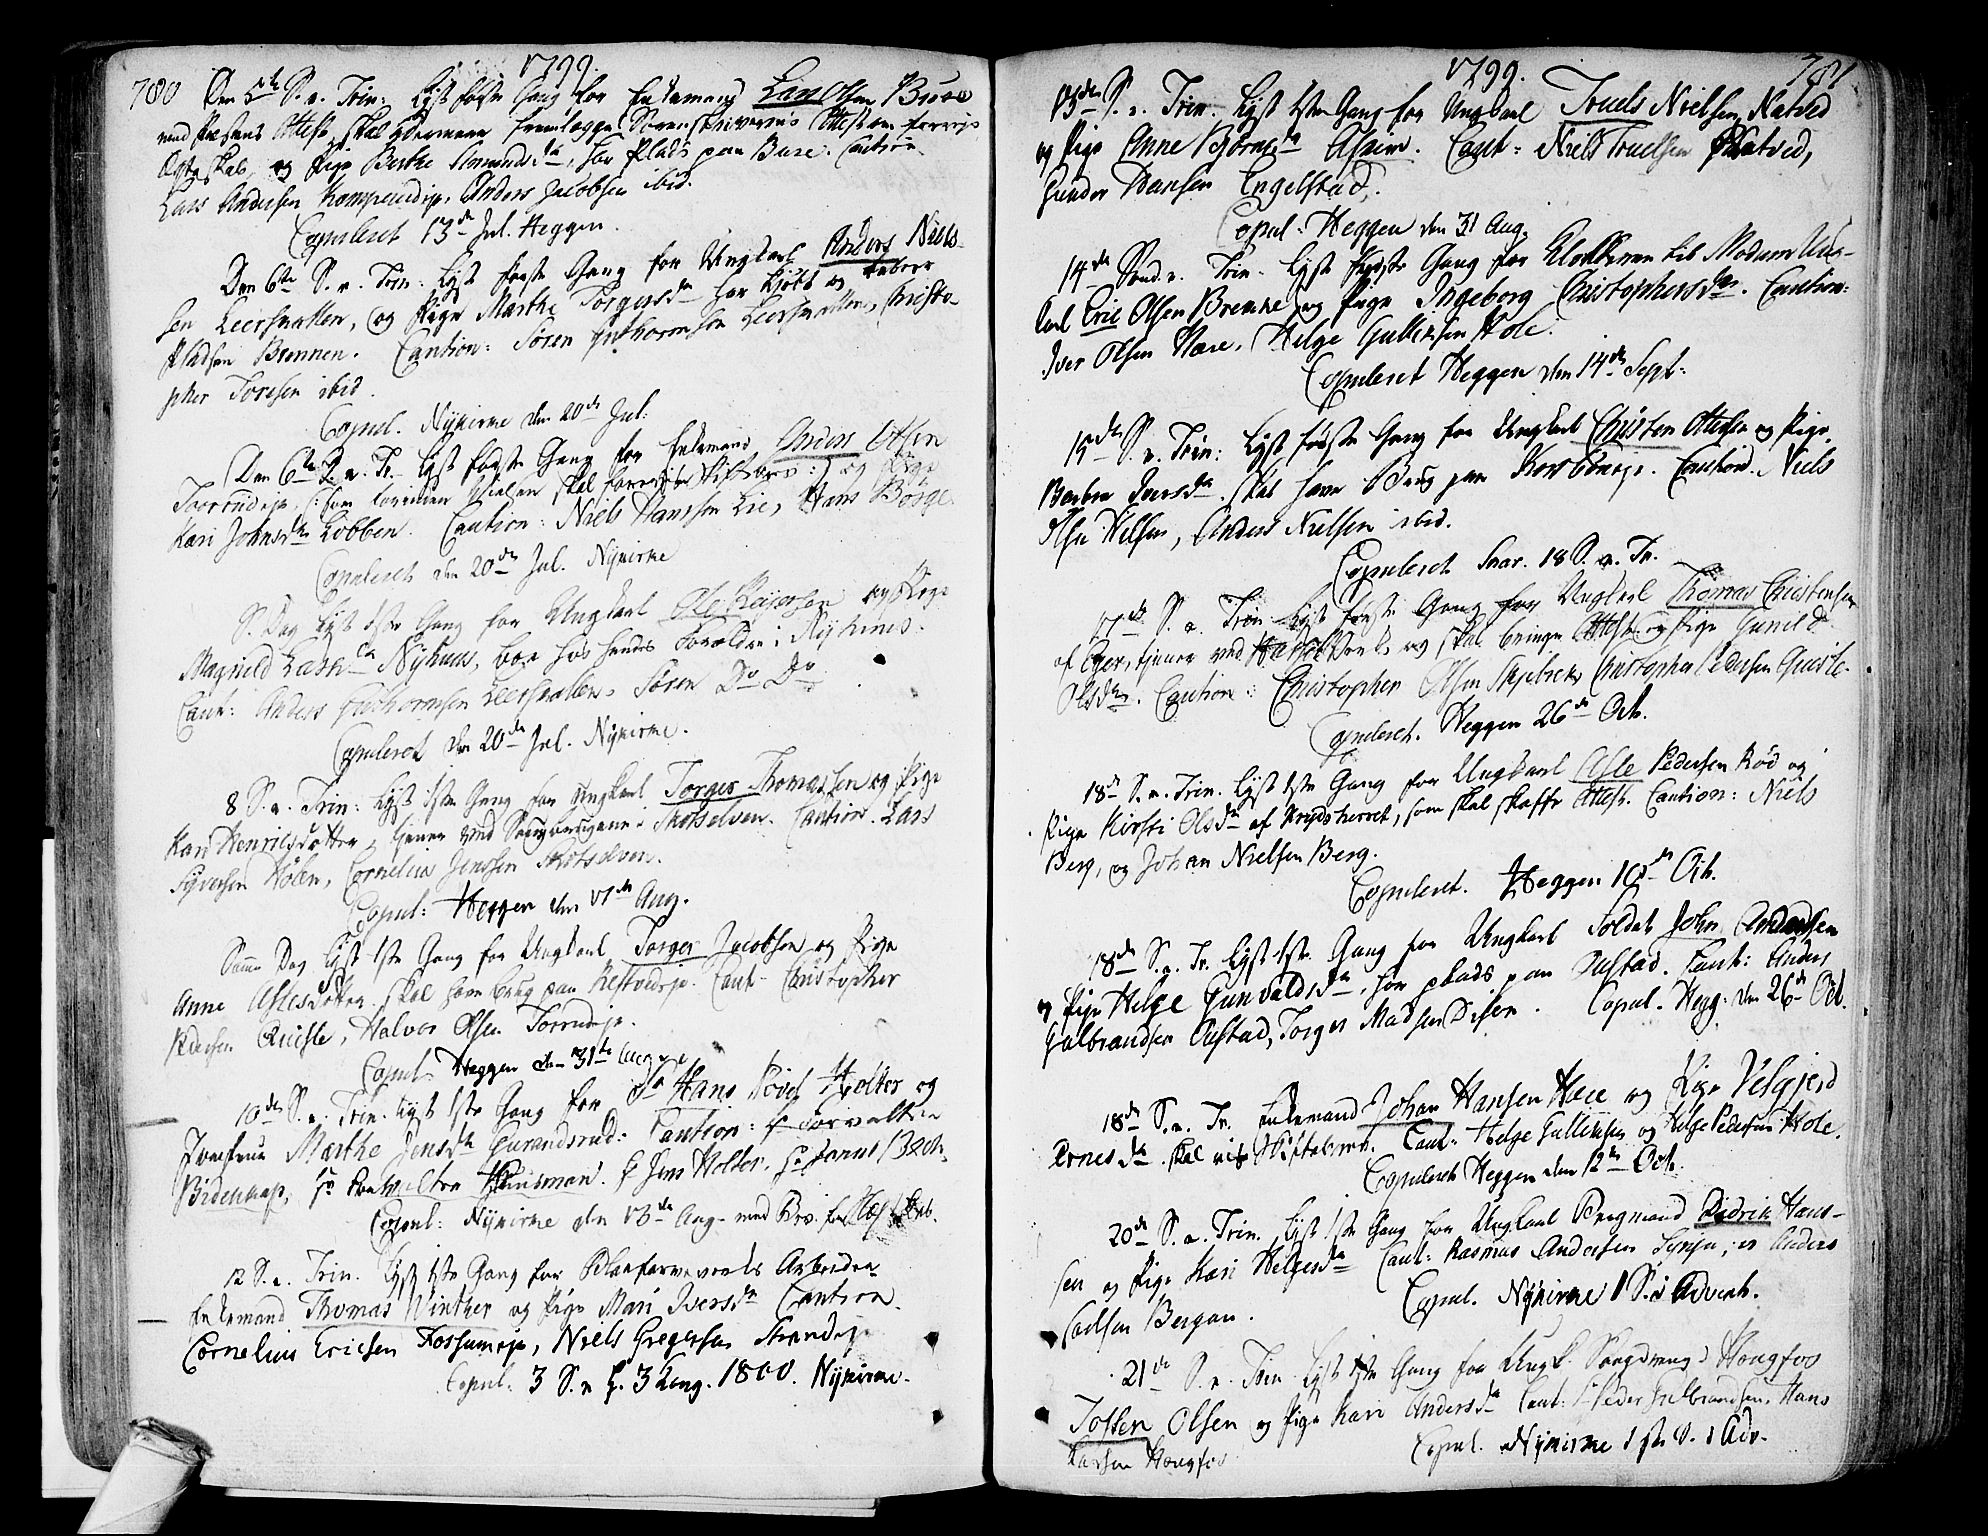 780
1799.
Den 5te S. e. Trin: Lyst første Gang for Enkemand Lars Olsen Buse
med Præstens Attest, skal Edermere fremlegge Sorenskriverens Attest om
og Pige Berthe Amundsdr. har Plads paa Buse. Caution
Lars Andersen Komperudeje, Anders Jacobsen ibid.
Copuleret 13de Jul. Heggen.
Den 6te S. e. Trin: Lyst første Gang for Ungkarl Anders Niels-
sen Leersvatten, og Pige Marthe Torgersdr har kjøbt og
Pladsen Brennen. Caution: Søren Guthormsen Leersvatten, Christo-
pher Toresen ibid.
Copul. Nykirke den 20de Jul:
Den 6te S. e. Tr. Lyst første Gang for Enkemand Anders Olsen
Toverudeje, (: som skal :) og Pige
Kari Johnsdr Lobben. Caution: Niels Hanssen Lie, Hans Børge
Copuleret den 20de Jul. Nykirke
S. Dag Lyst 1ste Gang for Ungkarl Ole Reiersen og Pige
Magnild Larsdr Nyhuus, boer hos hendes Forældre i Nykirke.
Caut: Anders Guthormsen Leersvatten. Søren Do Do
Copuleret den 20de Jul. Nykirke.
8 S. e. Trin: Lyst 1ste Gang for Ungkarl Torger Thomassen og Pige
Kari Henricsdatter, tiener ved Saugbrugene i Skotselven. Caution. Lars
Syversen Hølen, Cornelius Jenssen Skotselven.
Copul: Heggen den 17de Aug.
Samme Dag Lyst 1ste Gang for Ungkarl Torger Jacobsen og Pige
Anne Aslesdatter skal have brug paa Restvedeje. Caut- Christopher
Pedersen Quisle, Halvor Olsen Torrudeje.
Copul- Heggen den 31te Aug
10de S. e. Trin. Lyst 1ste Gang for Hr Hans Povel Holter og
Jomfrue Marthe Jensdr Gurandsrud: Caution: Hr Forvalter
Bidenknap, Hr Forvalter Huusmand. Hr Jens Holter. Hr
Copul: Nykirke den 16de Aug- med Bev.
12 S. e. Trin. Lyst 1ste Gang for Blaafarveverks Arbeider
Enkemand Thomas Winther og Pige Mari Iversdr Caution.
Cornelius Ericsen Fossumeje, Niels Gregersen Strandeje
Copul: 3 S. e H. 3 Kong. 1800. Nykirke.
1799.
781
13de S. e. Trin. Lyst 1ste Gang for Ungkarl Truels Nielsen Natved
og Pige Anne Bjørnsdr Aaseim. Caut: Niels Truelsen Natved,
Gunder Hansen Engelstad.
Copul: Heggen den 31 Aug.
14de Sønd. e. Trin. Lyst første Gang for
karl Eric Olsen Bremke og Pige Ingeborg Christophersdr. Caution:
Iver Olsen Hære, Helge Gulliksen Hole.
Copuleret Heggen den 14de Sept:
15de S. e. Trin: Lyst første Gang for Ungkarl Christen Ottesen og Pige
Barbra Iversdr. skal have Brug paa Korsbøneje. Caution. Niels
Olsen Helsen, Anders Nielsen ibid.
Copuleret Snar. 18 S. e. Tr.
17de S. e. Trin. Lyst første Gang for Ungkarl Thomas Christensen
af Eger, tiener ved og skal bringe Attest og Pige Gunild
Olsdr. Caution: Christopher Olsen Skjelbreds Christopher Pedersen Quisle.
Copuleret. Heggen 26de Oct.
18de S. e. Trin. Lyst 1ste Gang for Ungkarl Asle Pedersen Rød og
Pige Kirsti Olsdr af Krydsherret, som skal skaffe Attest. Caution: Niels
Berg, og Johan Nielsen Berg.
Copuleret. Heggen 10de Oct.
18de S. e. Tr. Lyst 1ste Gang for Ungkarl Soldat John Amundsen
og Pige Helge Gunvaldsdr, har plads paa Austad. Caut: Anders
Gulbrandsen Austad, Torger Madsen Disen. Copul. Hegg: den 26de Oct.
18de S. e. Tr. Enkemand Johan Hansen Hære og Pige Velgjerd
Arnesdr. skal vise Skiftebrev. Caut: Helge Gulliksen og Helge Pedersen Hole.
Copuleret Heggen den 12te Oct.
20de S. e. Trin. Lyst 1ste Gang for Ungkarl Bergmand Didrik Hans-
sen og Pige Kari Helgesdr Caut: Rasmus Andersen Synje, og Anders
Carlsen Bergan.
Copul. Nykirke 1 S. i Advent.
21de S. e. Trin Lyst 1ste Gang for Ungk. Saugdreng i Hougfos
Tosten Olsen og Pige Kari Andersdr Caut: Peder Gulbrandsen, Hans
Larsen Hougfos
Copul. Nykirke 1ste S. i Adv.